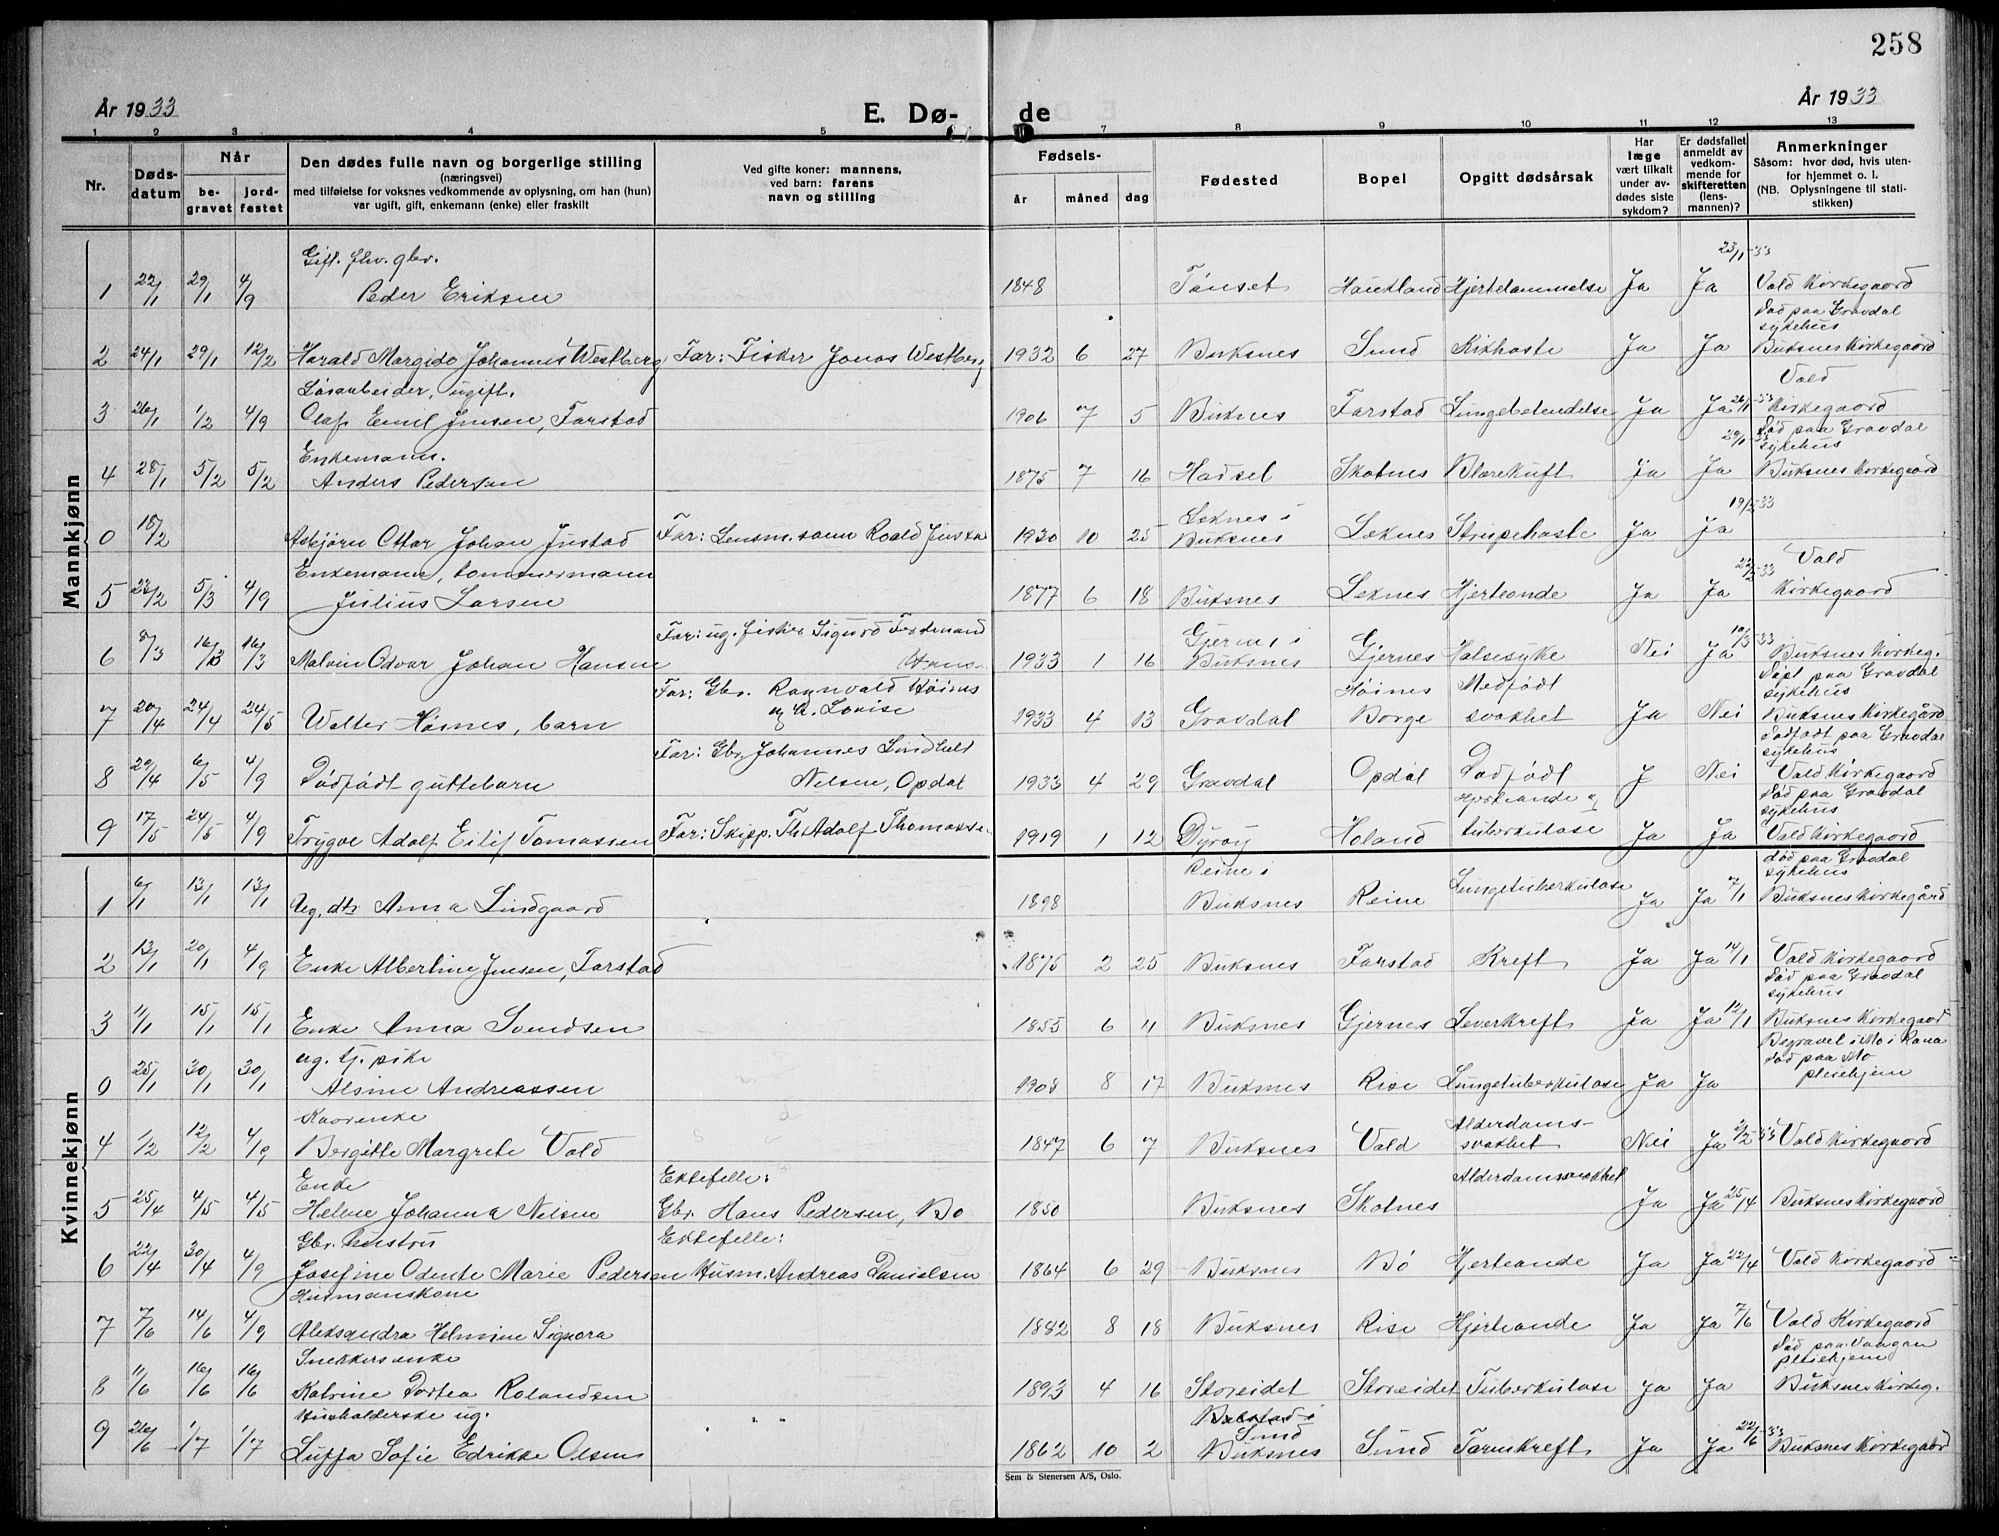 258
År 1933
E. Dø-
de
År 1933
1 2 3 4 5 7 8 9 10 11 12 13
Nr.
Døds-
datum
Når
be-
gravet
jord-
festet
Den dødes fulle navn og borgerlige stilling
(næringsvei)
med tilføielse for voksnes vedkommende av oplysning, om han (hun)
var ugift, gift, enkemann (enke) eller fraskilt
Ved gifte koner: mannens,
ved barn: farens
navn og stilling
Fødsels-
år måned dag
Fødested
Bopel
Opgitt dødsårsak
Har
læge
vært tilkalt
under av-
dødes siste
sykdom?
Er dødsfallet
anmeldt av
vedkom-
mende for
skifteretten
(lens-
mannen)?
Anmerkninger
Såsom: hvor død, hvis uten-
for hjemmet o. l.
(NB. Oplysningene til stati-
stikken)
Mannkjønn
Gift. fhv. gbr. 23/1-33
1 22/1 29/1 4/9 Peder Eriksen 1848 Tønset Haukland Hjertelammelse Ja Ja Vold Kirkegaard
Død paa Gravdal
sykehus
2 24/1 29/1 12/2 Harald Margido Johannes Westberg Far: Fisker Jonas Westberg 1932 6 27 Buksnes Sund Kikhoste Ja Ja Buksnes Kirkegaard
Løsarbeider, ugift. Vold
3 26/1 1/2 4/9 Olaf Emil Jensen, Farstad 1906 7 5 Buksnes Farstad Lungebetendelse Ja Ja 26/1-33 Kirkegaard
Død paa Gravdal
Enkemann. 29/1 33 sykehus
4 28/1 5/2 5/2 Anders Pedersen 1875 7 16 Hadsel Skotnes Blærekræft Ja Ja Buksnes Kirkegaard
0 18/2 Asbjørn Ottar Johan Justad Far: Lensm. sønn Roald Justa 1930 10 25 Leknes i Buksnes Leknes Strupehoste Ja Ja 19/2-33
Enkemann, tømmermann Vold
5 23/2 5/3 4/9 Julius Larsen 1877 6 18 Buksnes Leknes Hjerteonde Ja Ja 22/2-33 Kirkegaard
Far: ug. fisker Sigurd Ferdinand
6 8/3 16/3 16/3 Malvin Odvar Johan Hansen Hans 1933 1 16 Gjernes i Buksnes Gjernes Halsesyke Nei Ja 10/3-33 Buksnes Kirkeg.
Far: Gbr. Ragnvald Høines Døpt paa Gravdal
og h. Lovise sykehus
7 20/4 24/4 24/5 Walter Høines, barn 1933 4 13 Gravdal Høines Borge Medfødt svakhet Ja Nei Buksnes Kirkegård
Far: Gbr. Johannes Lindheld Dødfødt paa Gravdal
sykehus
8 29/4 6/5 4/9 Dødfødt guttebarn Nelsen, Opdal 1933 4 29 Gravdal Opdal Dødfødt J Nei Vold Kirkegaard
Hjerteonde og Død paa Gravdal
sykehus
9 17/5 24/5 4/9 Trygve Adolf Eilif Tomassen Far: Skipp. Th. Adolf Thomasse 1919 1 12 Dyrøy Holand tuberkulose Ja Ja Vold Kirkegaard
Kvinnekjønn
Reine i død paa Gravdal
sykehus
1 6/1 13/1 13/1 Ug. dtr Anna Lindgaard 1898 Buksnes Reine Lungetuberkulose Ja Ja 7/1 Buksnes Kirkegård
2 13/1 20/1 4/9 Enke Albertine Jensen, Farstad 1875 2 25 Buksnes Farstad Kreft Ja Ja 14/1 Vold Kirkegaard
Død paa Gravdal
sykehus
3 11/1 15/1 15/1 Enke Anna Svendsen 1855 6 11 Buksnes Gjernes Leverkreft Ja Ja 12/1 Buksnes Kirkegaard
ug. tj. pike Begravet i Mo i Rana
død paa Mo
0 25/1 30/1 30/1 Alsine Andreassen 1908 8 17 Buksnes Rise Lungetuberkulose Ja Ja pleiehjem
Kaarenke Alderdoms-
4 1/2 12/2 4/9 Bergitte Margrete Vold 1847 6 7 Buksnes Vold svakhet Nei Ja 2/2 33 Vold Kirkegaard
Enke Ektefelle: Alderdomssvakhet
5 25/4 4/5 4/5 Helene Johanna Nilsen Gbr. Hans Pedersen, Bø 1850 Buksnes Skotnes Ja Ja 25/4 Buksnes Kirkegaard
Gbr. hustru Ektefelle:
6 22/4 30/4 4/9 Josefine Odente Marie Pedersen Husm. Andreas Danielsen 1864 6 29 Buksnes Bø Hjerteonde Ja Ja 22/4 Vold Kirkegaard
Husmanskone
7 7/6 14/6 4/9 Aleksandra Helmine Signora 1882 8 18 Buksnes Rise Hjerteonde Ja Ja 7/6 Vold Kirkegaard
Snekkersenke Død paa Vaagan
pleiehjem
8 11/6 16/6 16/6 Katrine Dortea Rolandsen 1893 4 16 Storeidet Storeidet Tuberkulose Ja Ja Buksnes Kirkeg.
Husholderske ug. " " Balstad i
Sund
9 26/6 1/7 1/7 Luppa Sofie Edrikke Olsen 1862 10 2 Buksnes Sund Tarmkreft Ja Ja 22/6-33 Buksnes Kirkegaard
Sem & Stenersen A/S, Oslo.